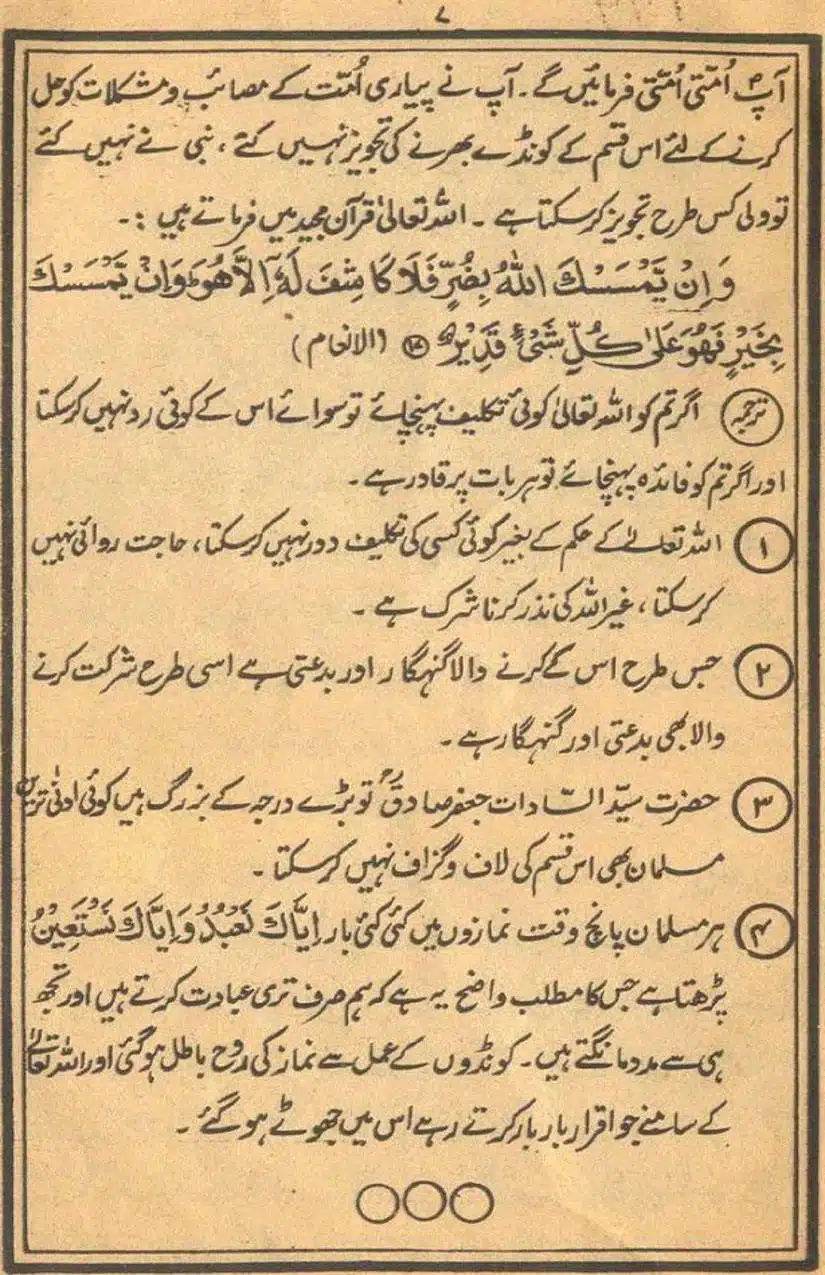 ۷
آپؐ اُمّتی اُمّتی فرمائیں گے۔ آپ نے پیاری اُمّت کے مصائب و مشکلات کو حل
کرنے کے لئے اس قسم کے کونڈے بھرنے کی تجویز نہیں کئے، نبی نے نہیں کئے
تو ولی کس طرح تجویز کر سکتا ہے۔ اللہ تعالیٰ قرآن مجید میں فرماتے ہیں :۔
وَاِنْ يَّمْسَسْكَ اللّٰهُ بِضُرٍّ فَلَا كَاشِفَ لَهٗٓ اِلَّا هُوَ ؕ وَاِنْ يَّمْسَسْكَ
بِخَيْرٍ فَهُوَ عَلٰى كُلِّ شَىْءٍ قَدِيْرٌ ⑰ (الانعام)
ترجمہ اگر تم کو اللہ تعالیٰ کوئی تکلیف پہنچائے تو سوائے اس کے کوئی رد نہیں کر سکتا
اور اگر تم کو فائدہ پہنچائے تو ہر بات پر قادر ہے۔
۱ اللہ تعالےٰ کے حکم کے بغیر کوئی کسی کی تکلیف دور نہیں کر سکتا، حاجت روائی نہیں
کر سکتا، غیر اللہ کی نذر کرنا شرک ہے۔
۲ جس طرح اس کے کرنے والا گنہگار اور بدعتی ہے اسی طرح شرکت کرنے
والا بھی بدعتی اور گنہگار ہے۔
۳ حضرت سیّد السّادات جعفر صادقؒ تو بڑے درجہ کے بزرگ ہیں کوئی ادنیٰ ترین
مسلمان بھی اس قسم کی لاف و گزاف نہیں کر سکتا۔
۴ ہر مسلمان پانچ وقت نمازوں میں کئی کئی بار اِيَّاكَ نَعْبُدُ وَاِيَّاكَ نَسْتَعِيْنُ
پڑھتا ہے جس کا مطلب واضح یہ ہے کہ ہم صرف تری عبادت کرتے ہیں اور تجھ
ہی سے مدد مانگتے ہیں۔ کونڈوں کے عمل سے نماز کی روح باطل ہو گئی اور اللہ تعالےٰ
کے سامنے جو اقرار بار بار کرتے رہے اس میں جھوٹے ہو گئے۔